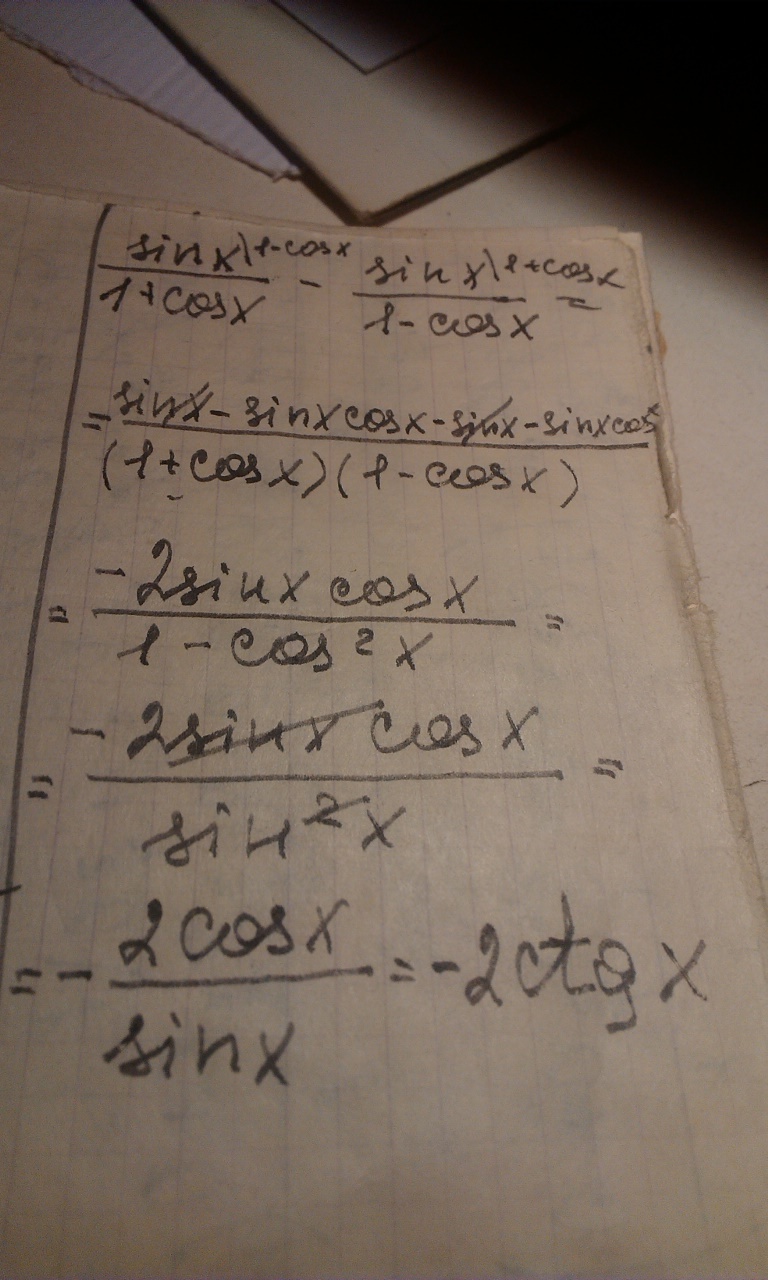 sinx\1-cosx / 1+cosx - sinx\1+cosx / 1-cosx =
= sinx - sinxcosx - sinx - sinxcosx / (1+cosx)(1-cosx)
= -2sinx cosx / 1-cos²x =
= -2sinx cosx / sin²x =
= - 2cosx / sinx = -2ctg x